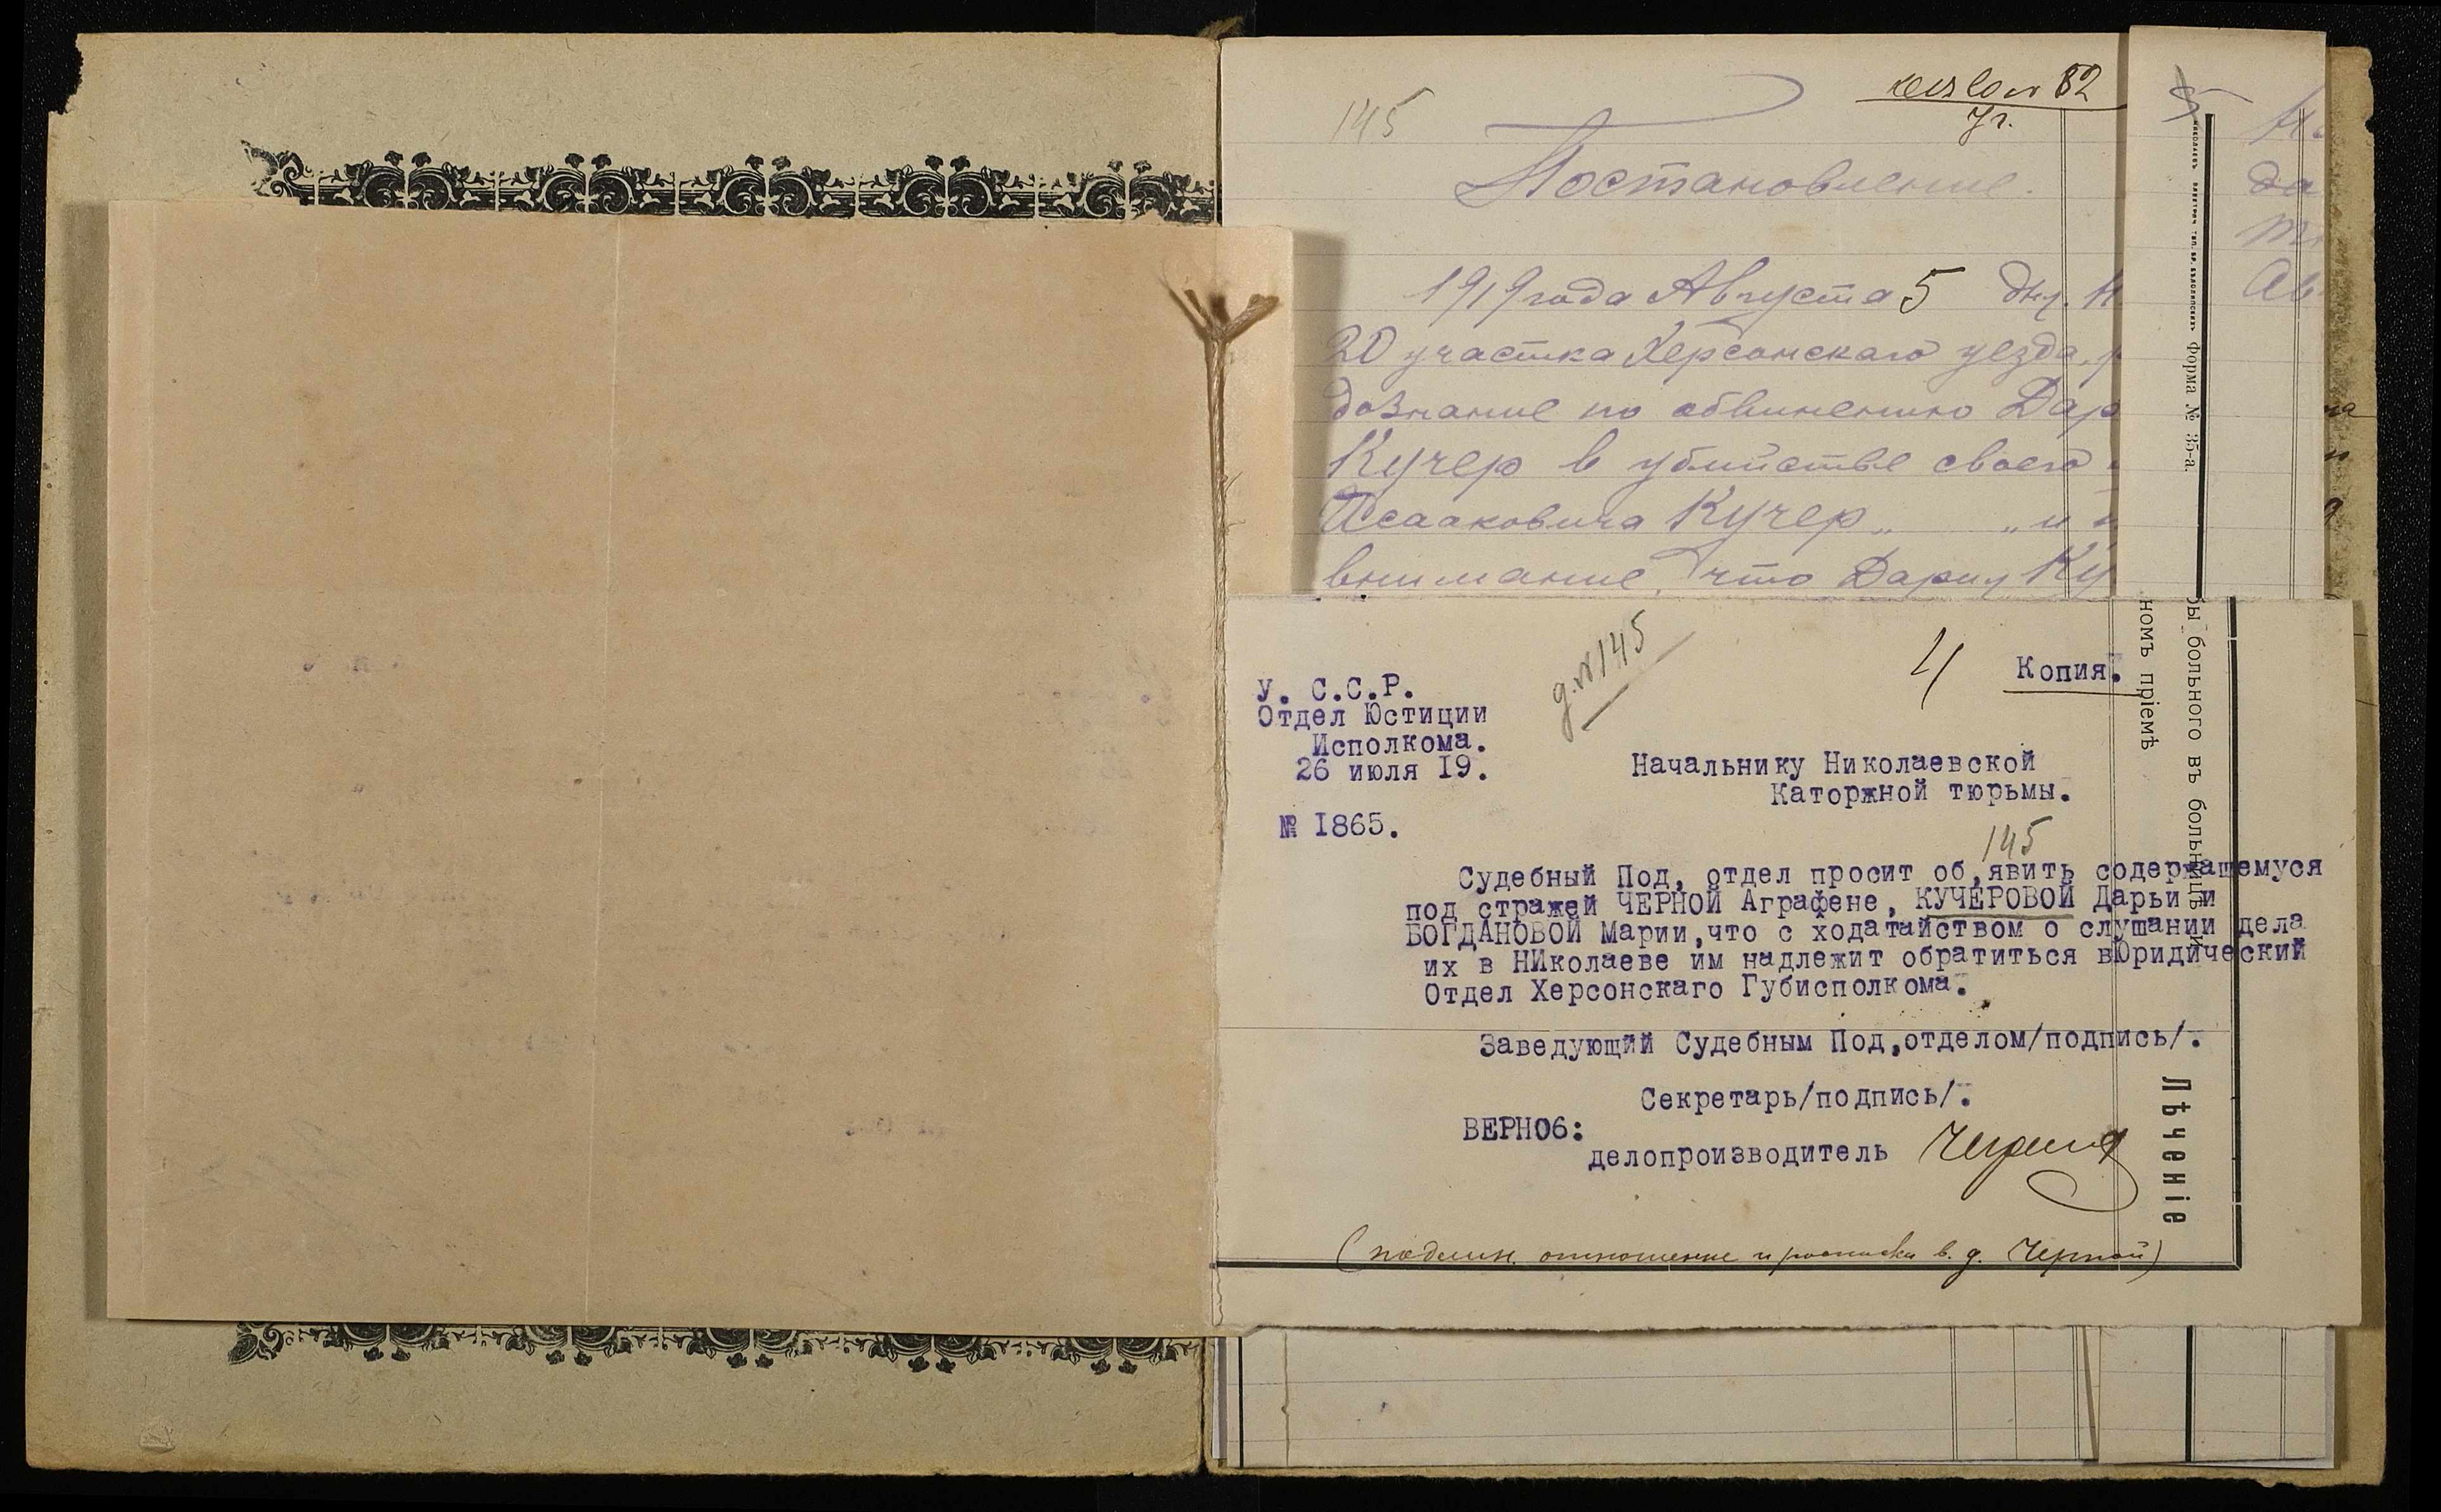 145
82
Постановление.
1919 года Августа 5 дня. Н
20 участка Херсонскаго уезда,
дознание по обвинению Дар
Кучер в убийстве своего
Исааковича Кучер „ „ и
внимание, что Дарья Ку
да
Ав
Форма № 35-а.
д. № 145
4
Копия.
У. С.С.Р.
Отдел Юстиции
Исполкома.
26 июля I9.
№ I865.
Начальнику Николаевской
Каторжной тюрьмы.
145
Судебный Под, отдел просит об,явить содержащемуся
под стражей ЧЕРНОЙ Аграфене, КУЧЕРОВОЙ Дарьи и
БОГДАНОВОЙ Марии,что с ходатайством о слушании дела
их в НИколаеве им надлежит обратиться вЮридический
Отдел Херсонскаго Губисполкома.
Заведующий Судебным Под,отделом/подпись/.
Секретарь/подпись/.
ВЕРНО6:
делопроизводитель
(подлин. отношение и росписка в д. Черной)
номъ пріемѣ
бы больного въ больницѣ
Лѣченіе